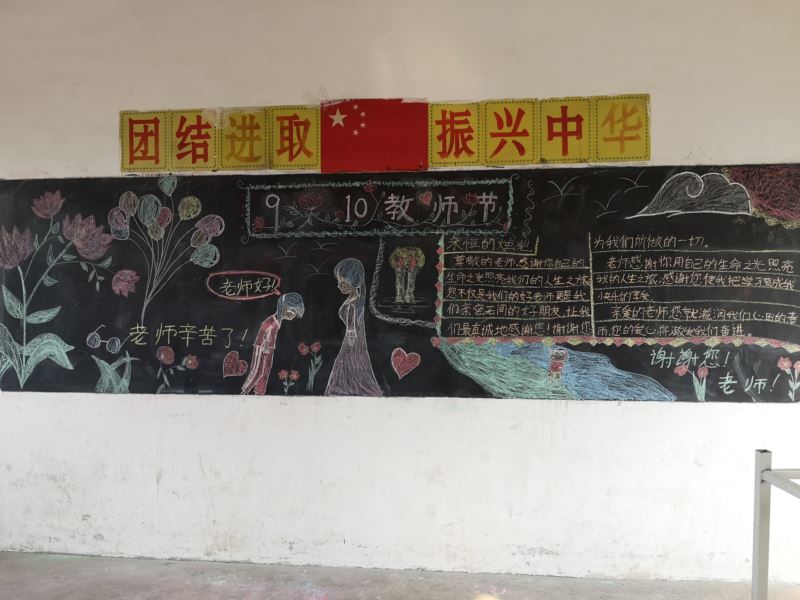 团结进取 振兴中华
9 10 教师节
老师好!
老师辛苦了!
永恒的烛光
尊敬的老师,感谢你自己的
生命之光照亮我们的人生之旅,
您不仅是我们的好老师更是我
们亲密无间的好朋友,让我
们最真诚地感谢您!谢谢您
为我们所做的一切。
老师感谢你用自己的生命之光照亮
我的人生之旅,感谢您使我把学习变成我
快乐的享受
亲爱的老师,您就滋润我们心田的
而,您的爱心将激发我们奋进。
谢谢您!
老师!